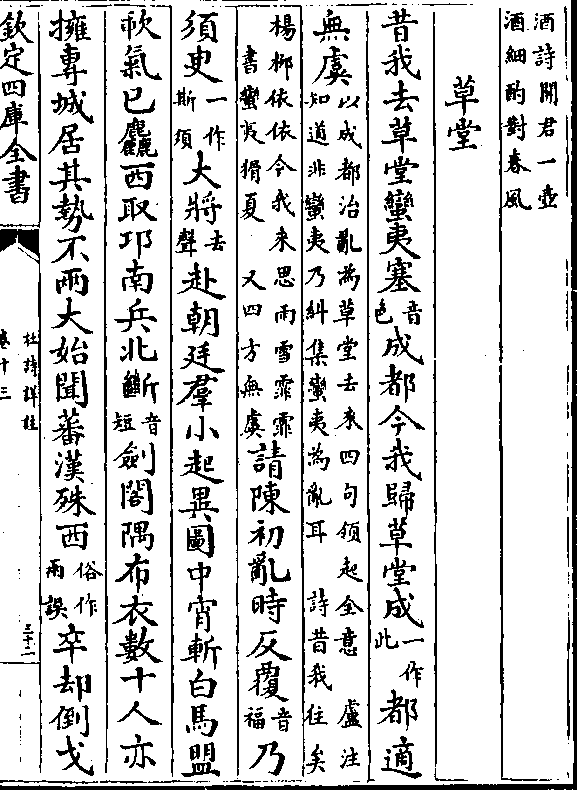 酒詩開君一壺
酒細酌對春風
草堂
昔我去草堂蠻夷塞音色成都今我歸草堂成一作此都適
無虞以成都治亂為草堂去來四句領起全意 盧注
知道非蠻夷乃糾集蠻夷為亂耳 詩昔我往矣
楊栁依依今我来思雨雪霏霏
書蠻夷猾夏 又四方無虞請陳初亂時反覆音福乃
須臾一作斯須大將去聲赴朝廷羣小起異圖中宵斬白馬盟
歃氣已麤西取邛南兵北斷音短劍閣隅布衣數十人亦
擁專城居其勢不兩大始聞蕃漢殊西俗作兩誤卒却倒戈
欽定四庫全書
杜詩詳註
卷十三
三十二